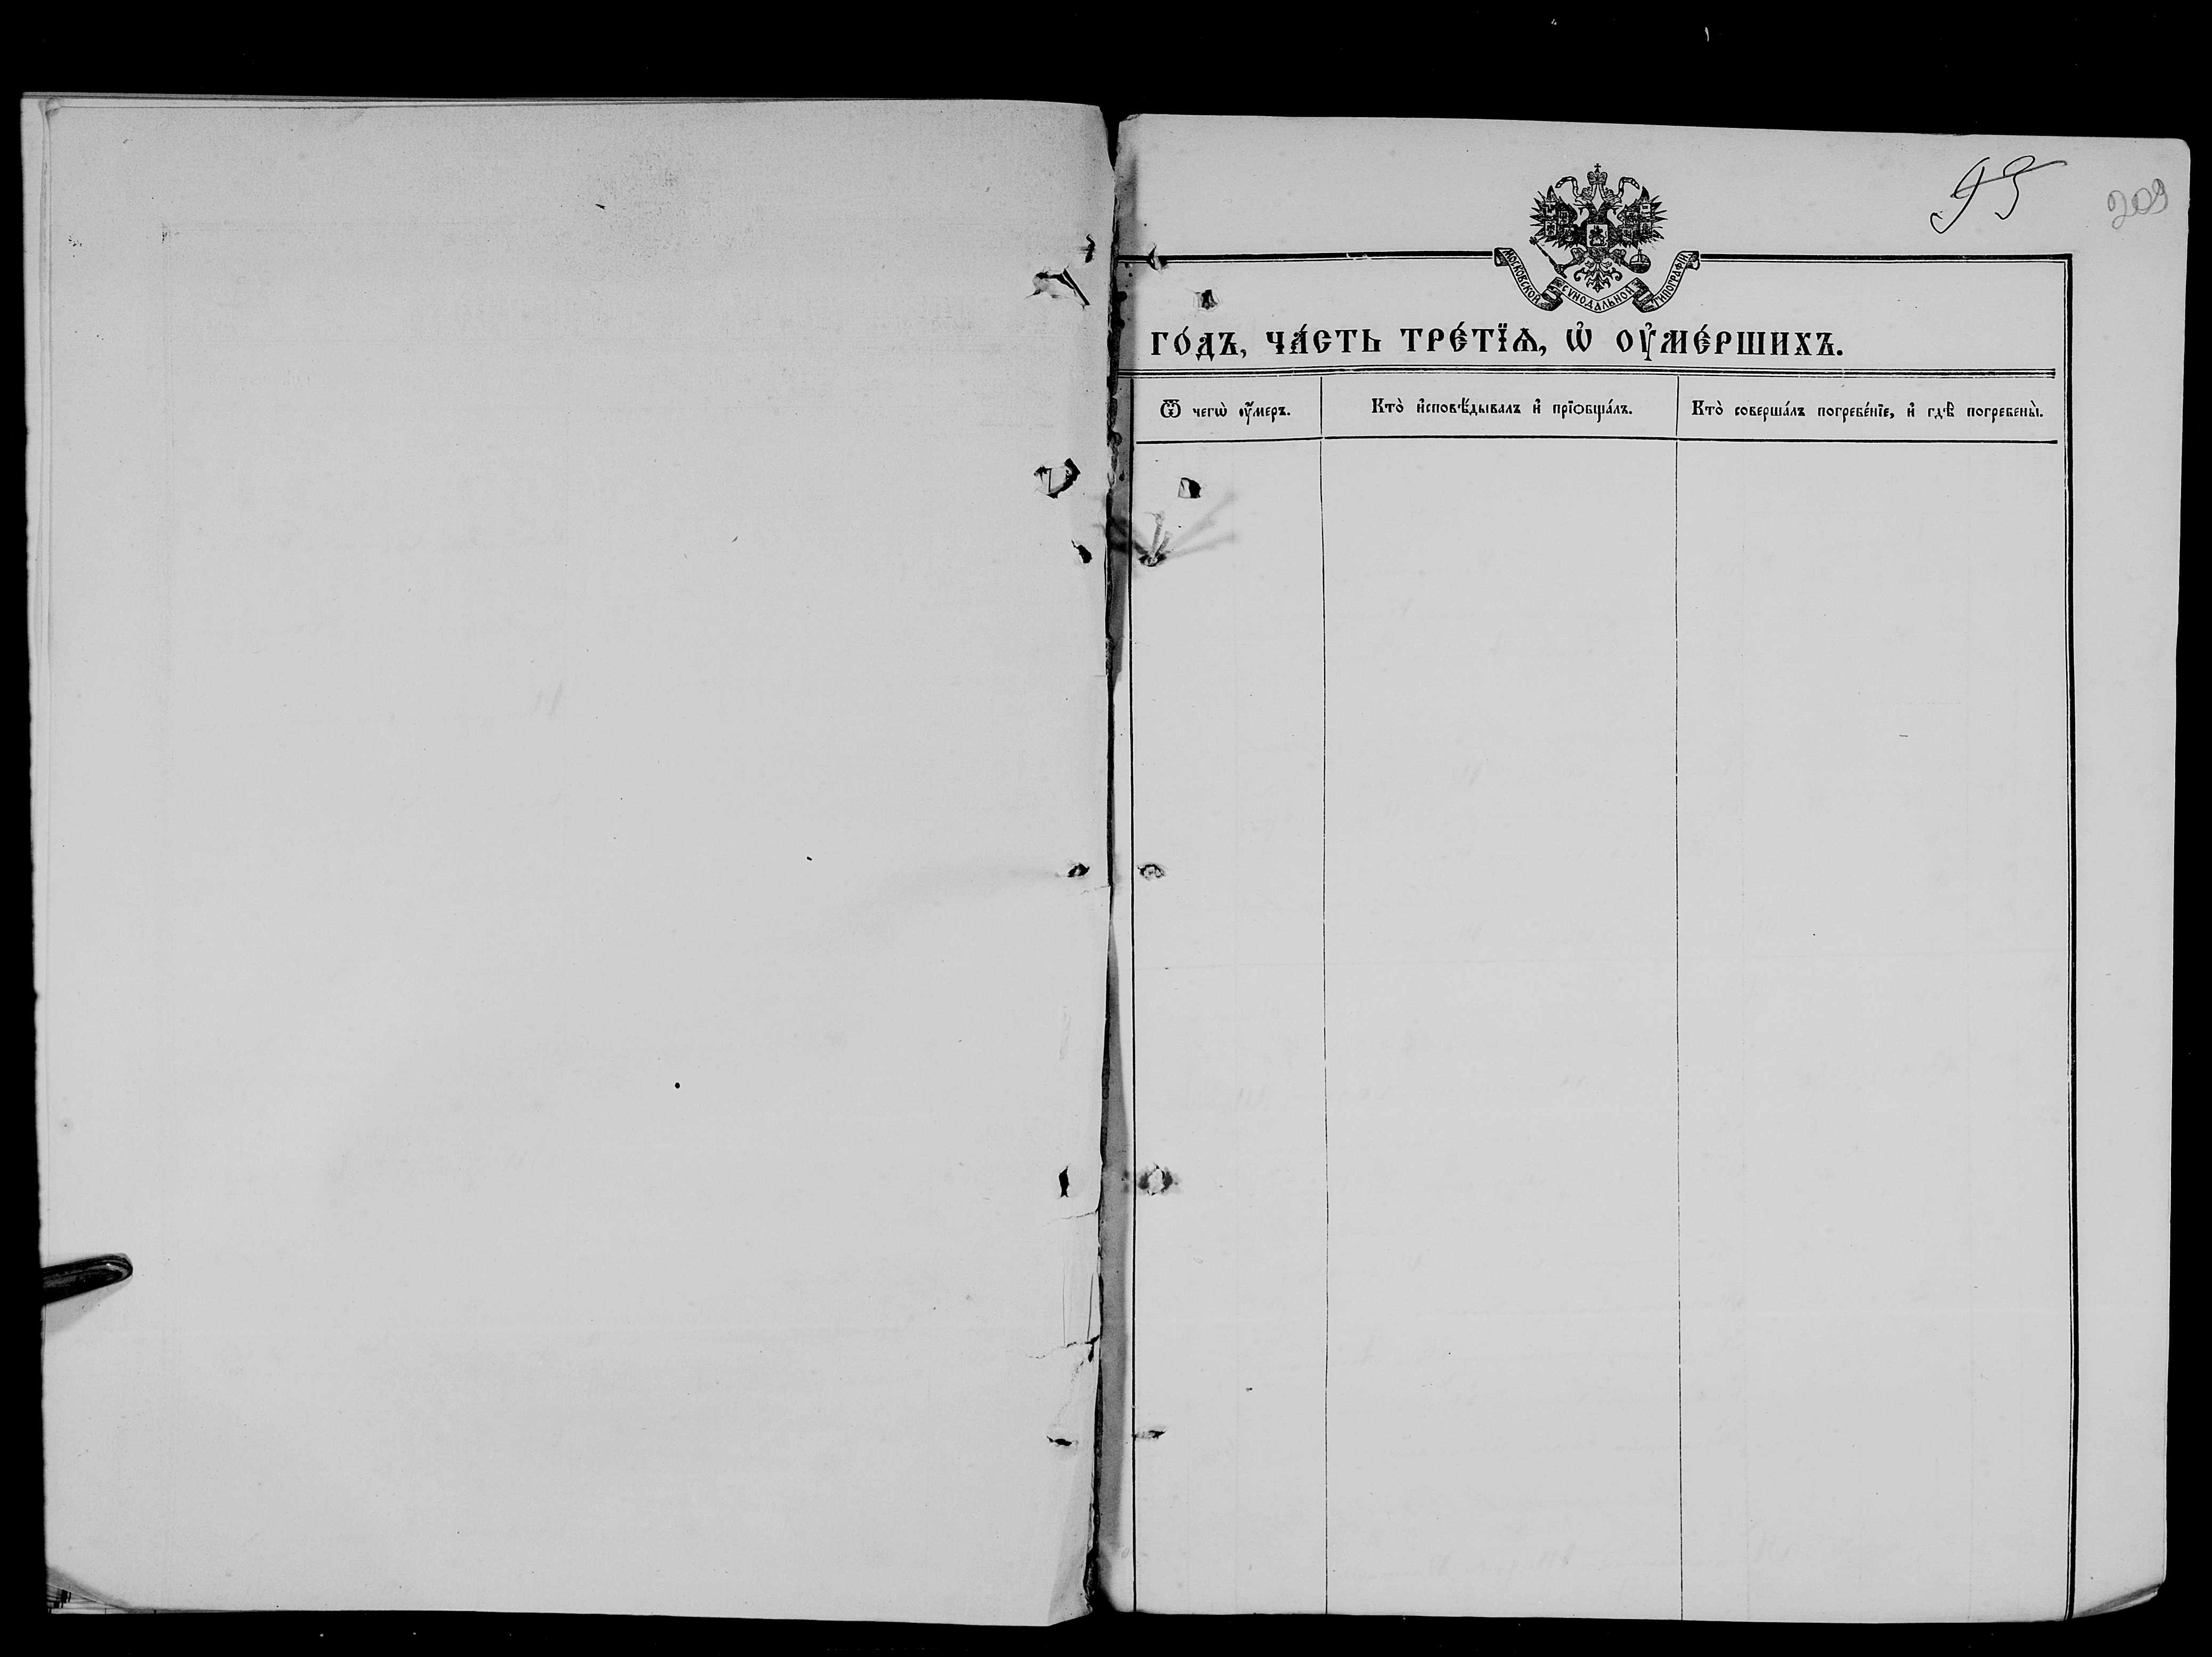 95
209
МОСКОВСКОЙ СѴНОДАЛЬНОЙ ТИПОГРАФІИ
го́дъ, ча́сть тре́тїѧ, ѡ҆ оу҆ме́ршихъ.
Ѿ чегѡ̀ оу҆́меръ.
Кто̀ и҆сповѣ́дывалъ и҆ прїѻбща́лъ.
Кто̀ соверша́лъ погребе́нїе, и҆ гдѣ̀ погребены̀.